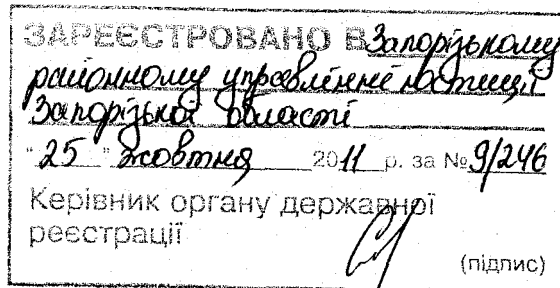 ЗАРЕЄСТРОВАНО В Запорізькому
районному управлінні юстиції
Запорізької області
"25" жовтня 2011 р. за № 9/246
Керівник органу державної
реєстрації
(підпис)